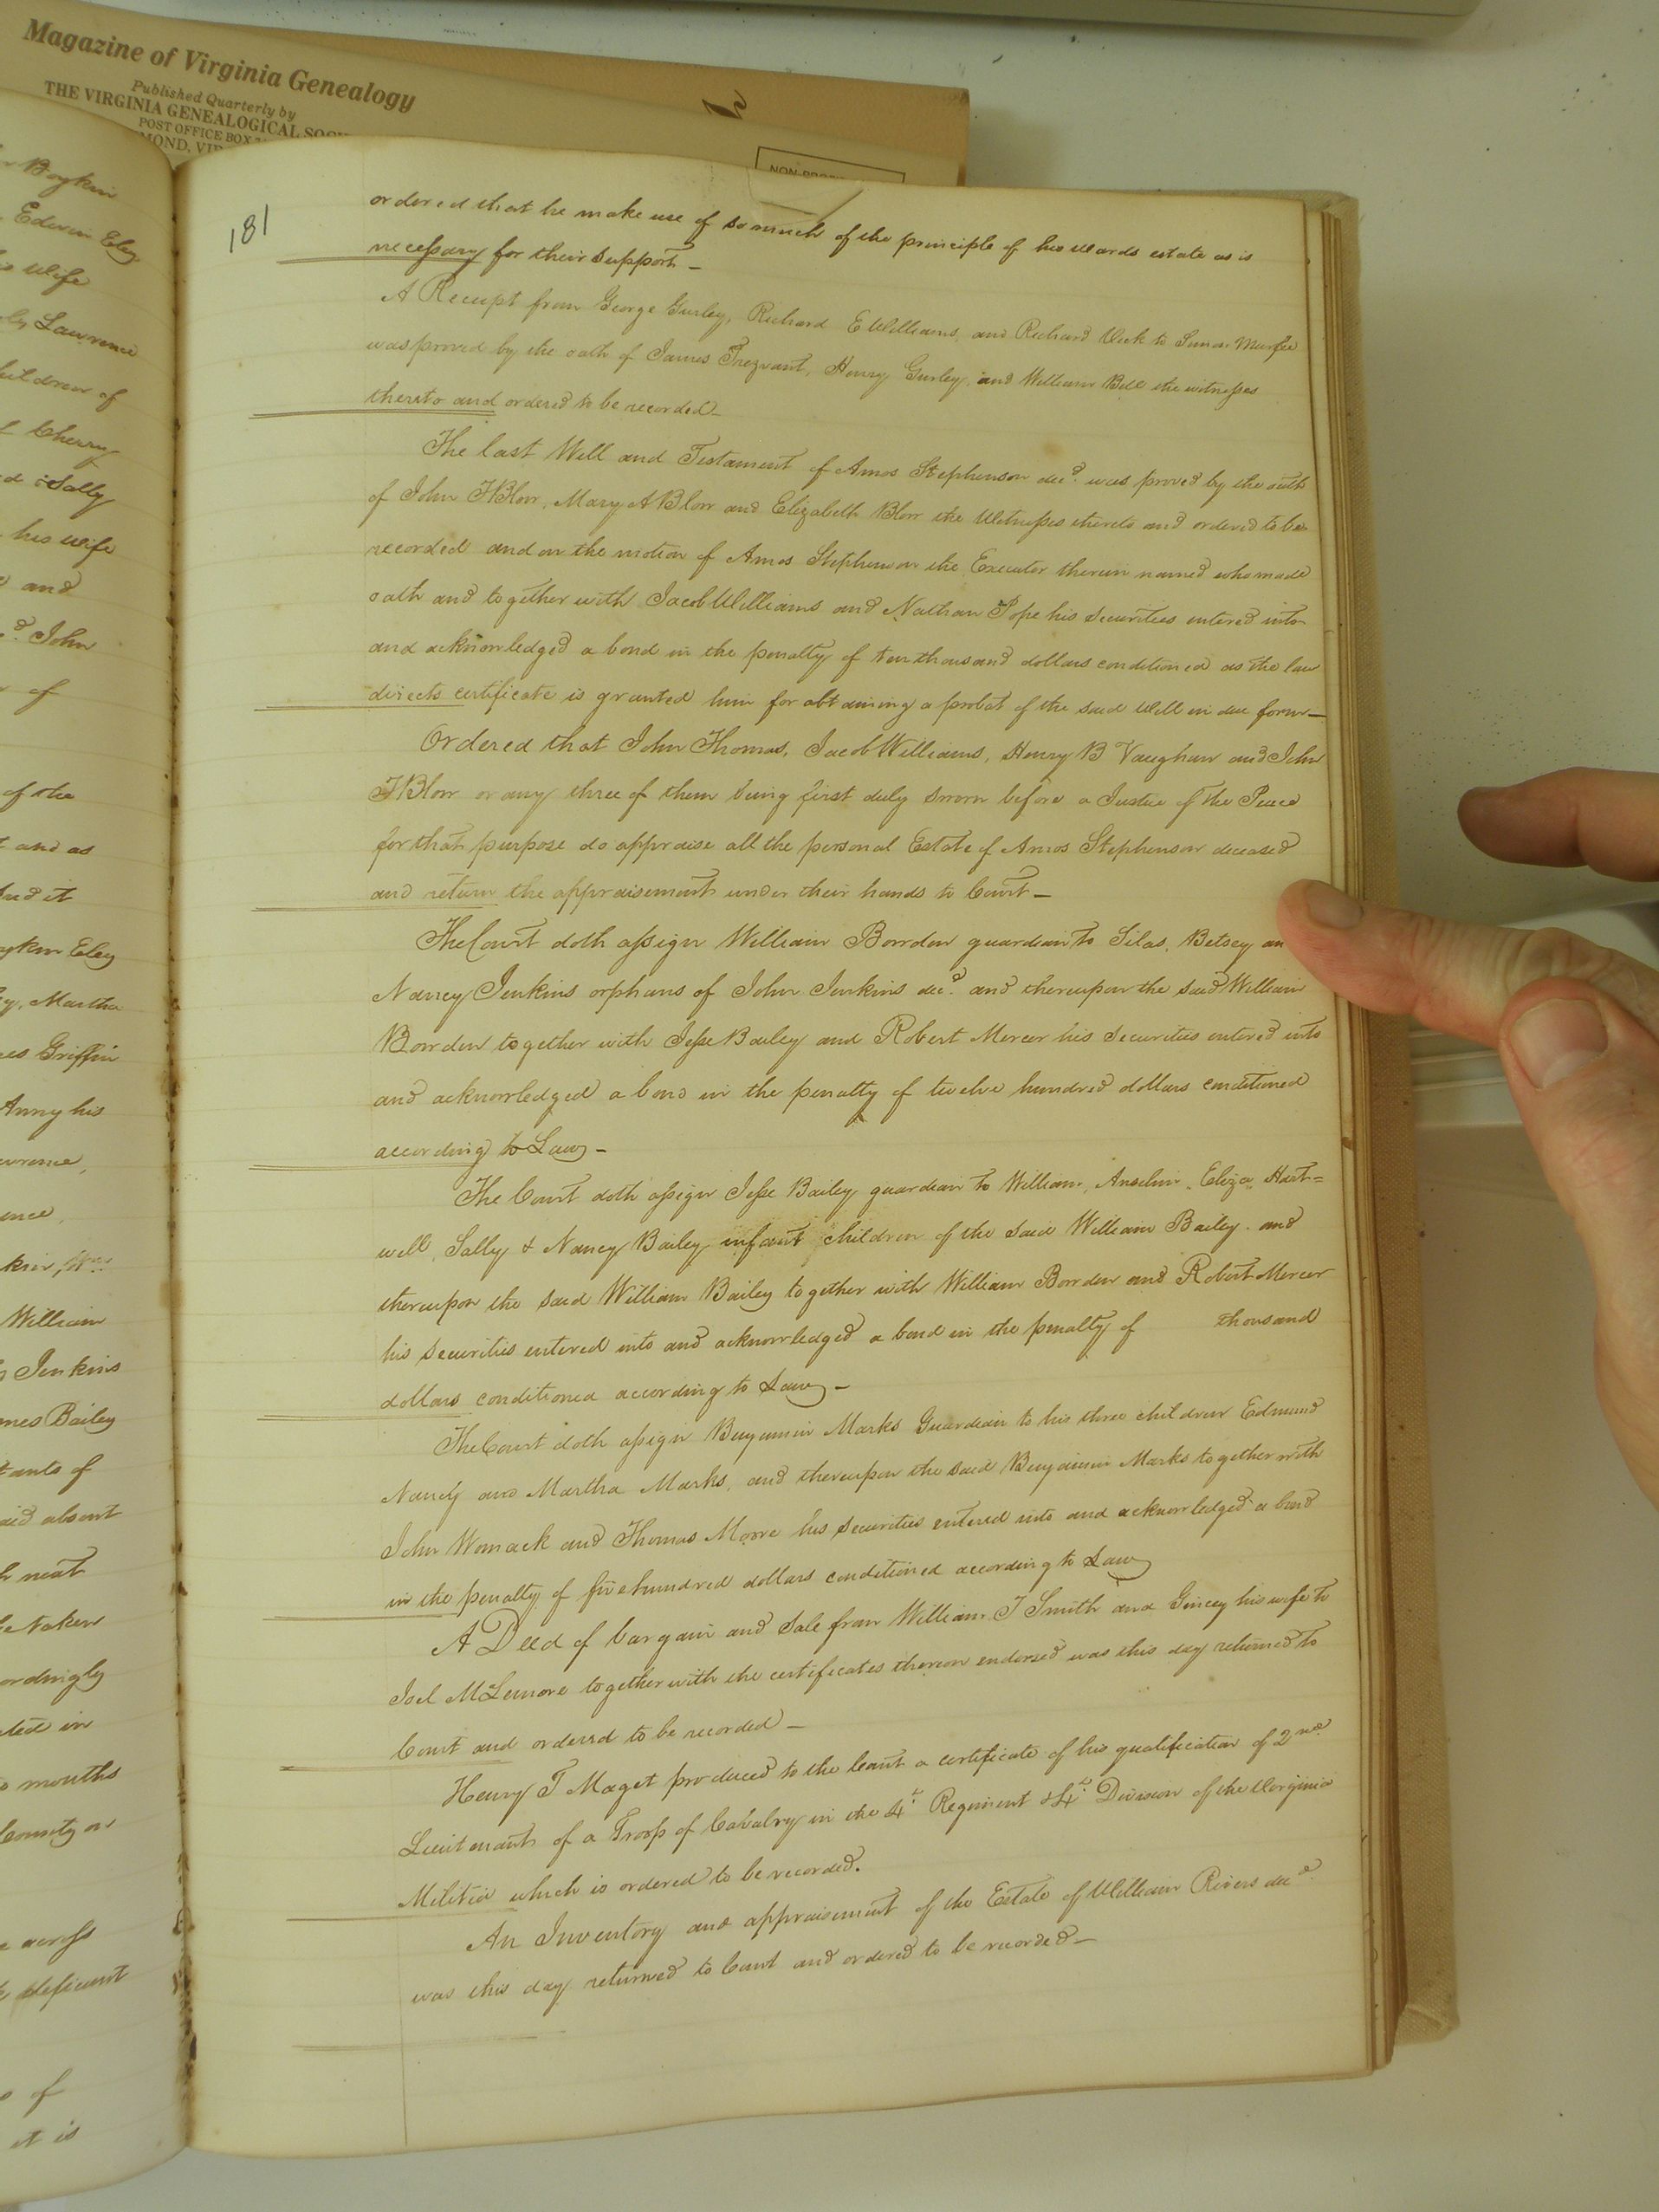 Magazine of Virginia Genealogy
Published Quarterly by
THE VIRGINIA GENEALOGICAL
POST OFFICE BOX
181
ordered that he make use of so much of the principle of his Wards estate as is
necessary for their support —
A Receipt from George Gurley, Richard E Williams, and Richard Vick to Simon Murfee
was proved by the oath of James Trezvant, Henry Gurley, and William Bell the witnesses
thereto and ordered to be recorded —
The last Will and Testament of Amos Stephenson decd. was proved by the oath
of John T Blow, Mary A Blow and Elizabeth Blow the Witnesses thereto and ordered to be
recorded and on the motion of Amos Stephenson the Executor therein named who made
oath and together with Jacob Williams and Nathan Pope his securities entered into
and acknowledged a bond in the penalty of ten thousand dollars conditioned as the law
directs certificate is granted him for obtaining a probat of the said Will in due form —
Ordered that John Thomas, Jacob Williams, Henry B Vaughan and John
T Blow or any three of them being first duly sworn before a Justice of the Peace
for that purpose do appraise all the personal Estate of Amos Stephenson deceased
and return the appraisement under their hands to Court —
The Court doth assign William Bowden guardian to Silas, Betsey an
Nancy Jenkins orphans of John Jenkins decd. and thereupon the said William
Bowden together with Jesse Bailey and Robert Mercer his Securities entered into
and acknowledged a bond in the penalty of twelve hundred dollars conditioned
according to Law —
The Court doth assign Jesse Bailey guardian to William, Anselm, Eliza, Hart=
well, Sally & Nancy Bailey infant children of the said William Bailey. and
thereupon the said William Bailey together with William Bowden and Robert Mercer
his securities entered into and acknowledged a bond in the penalty of thousand
dollars conditioned according to Law —
The Court doth assign Benjamin Marks Guardian to his three children Edmund
Nancy and Martha Marks, and thereupon the said Benjamin Marks together with
John Womack and Thomas Moore his securities entered into and acknowledged a bond
in the penalty of five hundred dollars conditioned according to Law
A Deed of bargain and Sale from William T Smith and Gincey his wife to
Joel McLemore together with the certificates thereon endorsed was this day returned to
Court and ordered to be recorded —
Henry T Maget produced to the Court a certificate of his qualification of 2nd
Lieutenant of a Troop of Cavalry in the 4t. Regiment & 4t. Division of the Virginia
Militia which is ordered to be recorded.
An Inventory and appraisement of the Estate of William Rivers decd.
was this day returned to Court and ordered to be recorded —